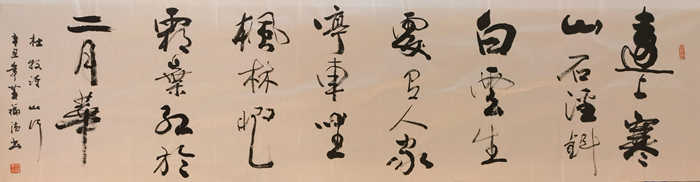 遠上寒
山石徑斜
白雲生
處有人家
停車坐
楓林晚
霜葉紅於
二月華
杜牧詩 山行
辛丑年 書